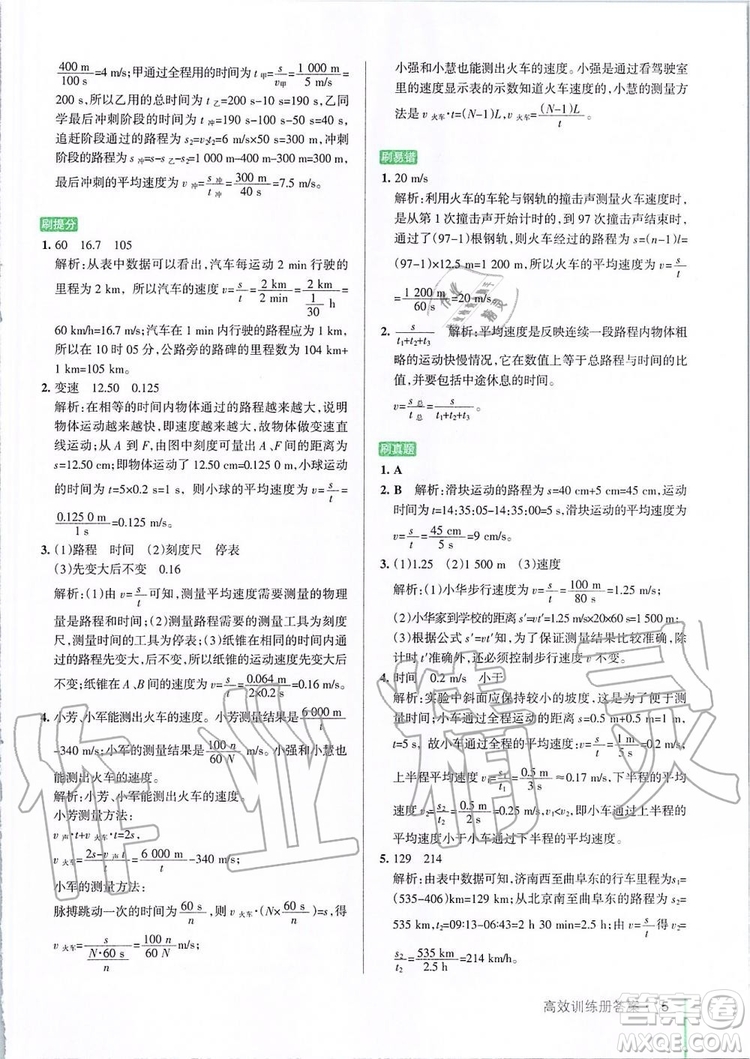 400 m/100 s=4 m/s;甲通过全程用的时间为 t甲=s/v=1 000 m/5 m/s=
200 s,所以乙用的总时间为 t乙=200 s-10 s=190 s,乙同
学最后冲刺阶段的时间为 t冲=190 s-100 s-50 s=40 s,
追赶阶段的路程为 s₂=v₂t₂=6 m/s×50 s=300 m,冲刺
阶段的路程为 s冲=1 000 m-400 m-300 m=300 m,
最后冲刺的平均速度为 s冲/t冲=300 m/40 s=7.5 m/s。
刷提分
1. 60 16.7 105
解析:从表中数据可以看出,汽车每运动 2 min 行驶的
里程为 2 km,所以汽车的速度 v=s/t=2 km/2 min=2 km/(1/30 h)=
60 km/h=16.7 m/s;汽车在 1 min 的路程应为 1 km,
所以到 10 时 05 分,公路旁的路碑的里程为 104 km+
1 km=105 km。
2. 变速 12.50 0.125
解析:在相等的时间内物体通过的路程越来越大,说明
物体运动越来越快,即速度越来越大,故物体做变速直
线运动;从 A 到 F,由图中刻度可知,AF 间的距离为
s=12.50 cm;即物体运动了 12.50 cm,小球运动
的时间为 t=5×0.2 s=1 s,则小球的平均速度为 v=s/t=
0.125 0 m/1 s=0.125 m/s。
3. (1)路程 时间 (2)刻度尺 停表
(3)先变大后不变 0.16
解析:(1)由 v=s/t 可知,测量平均速度需要测量的物理
量是路程和时间;(2)测量路程需要的测量工具为刻
度尺,测量时间的工具为停表;(3)纸锥在下落过程中
通过的路程先变大后不变,所以运动速度先变大后不
变;纸锥在 A、B 间的速度为 v=s/t=0.064 m/2×0.2 s=0.16 m/s。
4. 小芳、小军能测出火车的速度。小芳测量结果是6 000 m/t
-340 m/s;小军的测量结果是100 n/60 N m/s。小强和小慧也
能测出火车的速度。
解析:小芳、小军能测出火车的速度。
小芳测量方法:
v声·t+v火车·t=2s,
v火车=2s-v声t/t=6 000 m/t-340 m/s;
小军的测量方法:
脉搏跳动一次的时间为60 s/n,则 v火车·(N×60 s/n)=s,得
v火车=s/(N·60 s/n)=100 n/60 N m/s;
小强和小慧也能测出火车的速度。小强是看驾驶室
里的速度显示表的示数知道火车速度的,小慧的测量方
法是 v火车·t=(N-1)L,v火车=(N-1)L/t。
刷易错
1. 20 m/s
解析:利用火车的车轮与钢轨的撞击声测量火车速度时,
是从第 1 次撞击声开始计时,到 97 次撞击声时火车运动
了(97-1)根钢轨,所以火车运动的路程为 s=(n-1)l=
(97-1)×12.5 m=1 200 m,所以火车的平均速度为 v=s/t=
1 200 m/60 s=20 m/s。
2. s/t₁+t₂+t₃ 解析:平均速度是反映连续一段路程内物体粗
略的运动快慢情况,它在数值上等于总路程与总时间的
比值,包括中途休息的时间。
v=s总/t总=s/t₁+t₂+t₃。
刷真题
1. A
2. B 解析:滑块运动的路程为 s=40 cm+5 cm=45 cm,运动
时间为 t=14:35:05-14:35:00=5 s,滑块运动的平均速度为
v=s/t=45 cm/5 s=9 cm/s。
3. (1)1.25 (2)1 500 m (3)速度
解析:(1)小华步行速度为 v=s/t=100 m/80 s=1.25 m/s;
(2)小华家到学校的距离 s′=vt′=1.25 m/s×20×60 s=1 500 m;
(3)根据公式 s′=vt′知,为了保证测量结果比较准确,除计
时 t′准确外,还必须控制步行速度 v 不变。
4. 时间 0.2 m/s 小于
解析:实验中斜面应保持较小的坡度,这样小车运动的时
间长,便于测时间;小车通过全程运动的路程 s=0.5 m+0.5 m=1 m,
t=5 s,故小车通过全程的平均速度为 v=s/t=1 m/5 s=0.2 m/s;
上半程平均速度 v₁=s₁/t₁=0.5 m/3 s≈0.17 m/s,下半程的平均
速度 v₂=s₂/t₂=0.5 m/2 s=0.25 m/s,v₁<v₂,故小车通过上半程的
平均速度小于小车通过下半程的平均速度。
5. 129 214
解析:由表中数据可知,济南西至曲阜东的行车里程为s₁=
(535-406)km=129 km;从北京南至曲阜东的行车里程为s₂=
535 km,t₂=09:13-06:43=2 h 30 min=2.5 h,由 v=s/t得v₂=
s₂/t₂=535 km/2.5 h=214 km/h。
高效训练册答案 5
作业精灵
答案圈
MXQE.COM